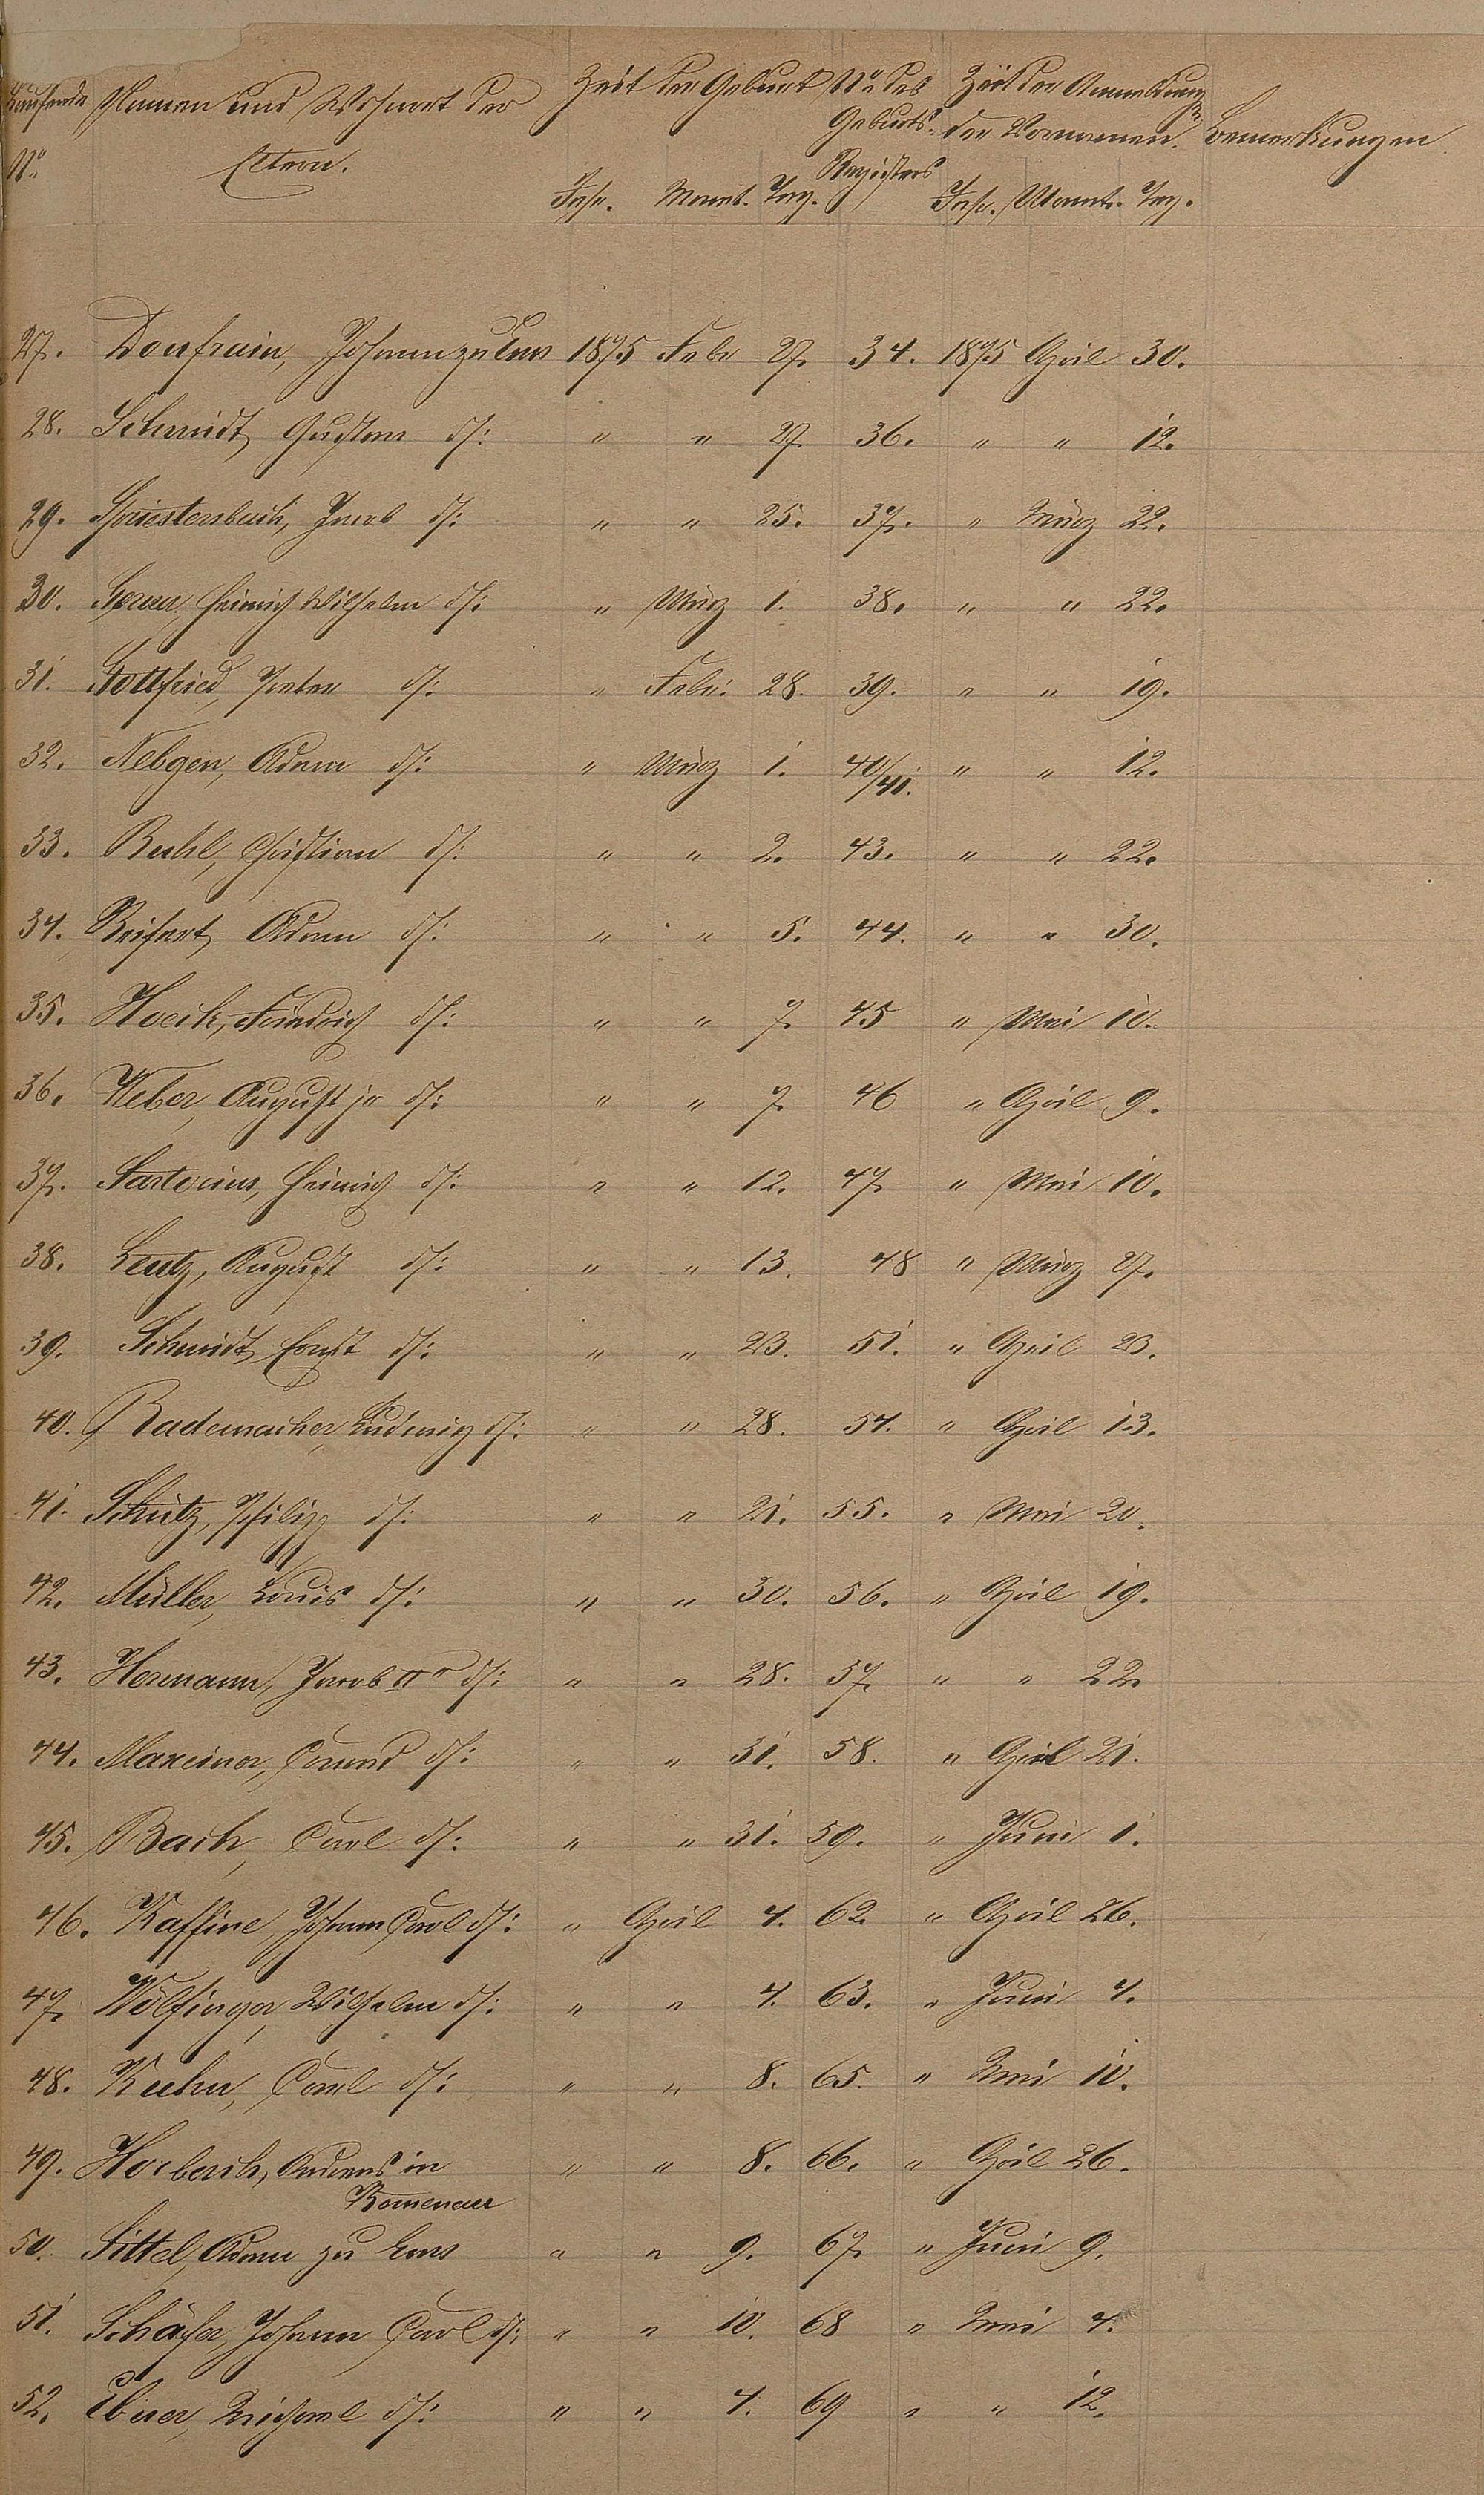 Laufende Namen und Wohnort der Zeit der Geburt No des Zeit der Anmeldung
Geburts- der Vornamen. Bemerkungen
No Eltern. Registers
Jahr. Monat. Tag. Jahr. Monat. Tag.
27. Johann zu Ems 1875 Febr 27. 34. 1875 April 30.
28. Schmidt, Gustav d/: " " 27. 36. " " 12.
29. Jacob d/: " " 25. 37. " März 22.
30. Heinrich Wilhelm d/: " März 1. 38. " " 22.
31. Gottfried, Peter d/: " Febr. 28. 39. " " 19.
32. Nebgen, Adam d/: " März 1. 40/41. " " 12.
33. Christian d/: " " 2. 43. " " 22.
34. Adam d/: " " 5. 44. " " 30.
35. Friedrich d/: " " 7. 45 " Mai 10.
36. Weber, August jr d/: " " 7. 46 " April 9.
37. Sartorius, Heinrich d/: " " 12. 47. " Mai 10.
38. August d/: " " 13. 48 " März 27.
39. Schmidt, Ernst d/: " " 23. 51. " April 23.
40. Rademacher, Ludwig d/: " " 28. 54. " April 13.
41. Schütz, Philipp d/: " " 21. 55. " Mai 20.
42. Müller, Louis d/: " " 30. 56. " April 19.
43. Hermann, Jacob IIr d/: " " 28. 57. " " 22.
44. Maxeiner, d/: " " 31. 58. " April 21.
45. Bach, Carl d/: " " 31. 59. " Juni 1.
46. Kaffine, Johann Carl d/: " April 4. 62. " April 26.
47. Wölfinger, Wilhelm d/: " " 4. 63. " Juni 4.
48. Kuhn, Carl d/: " " 8. 65. " Mai 10.
49. Andreas in " " 8. 66. " April 26.
50. Sittel, Adam zu Ems " " 9. 67. " Juni 9.
51. Schäfer, Johann Carl d/: " " 10. 68 " Mai 4.
52. Michael d/: " " 4. 69 " " 12.